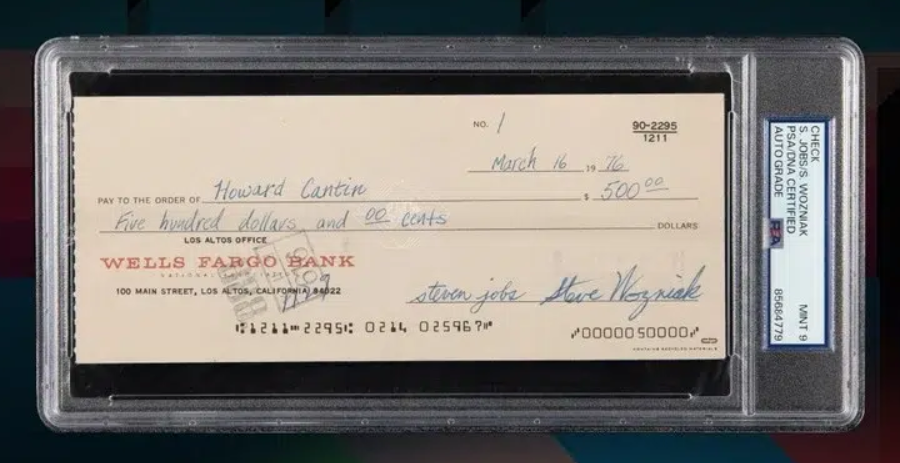 NO. 1
90-2295
1211
March 16 1976
PAY TO THE ORDER OF Howard Cantin $ 500 00
Five hundred dollars and 00 cents DOLLARS
LOS ALTOS OFFICE
WELLS FARGO BANK
NATIONAL ASSOCIATION
100 MAIN STREET, LOS ALTOS, CALIFORNIA 94022
steven jobs Steve Wozniak
⑆1211⑉2295⑆ 0214 025967⑈ ⑇0000050000⑇
CHECK
S. JOBS/S. WOZNIAK
PSA/DNA CERTIFIED
AUTO GRADE
MINT 9
PSA
85684779